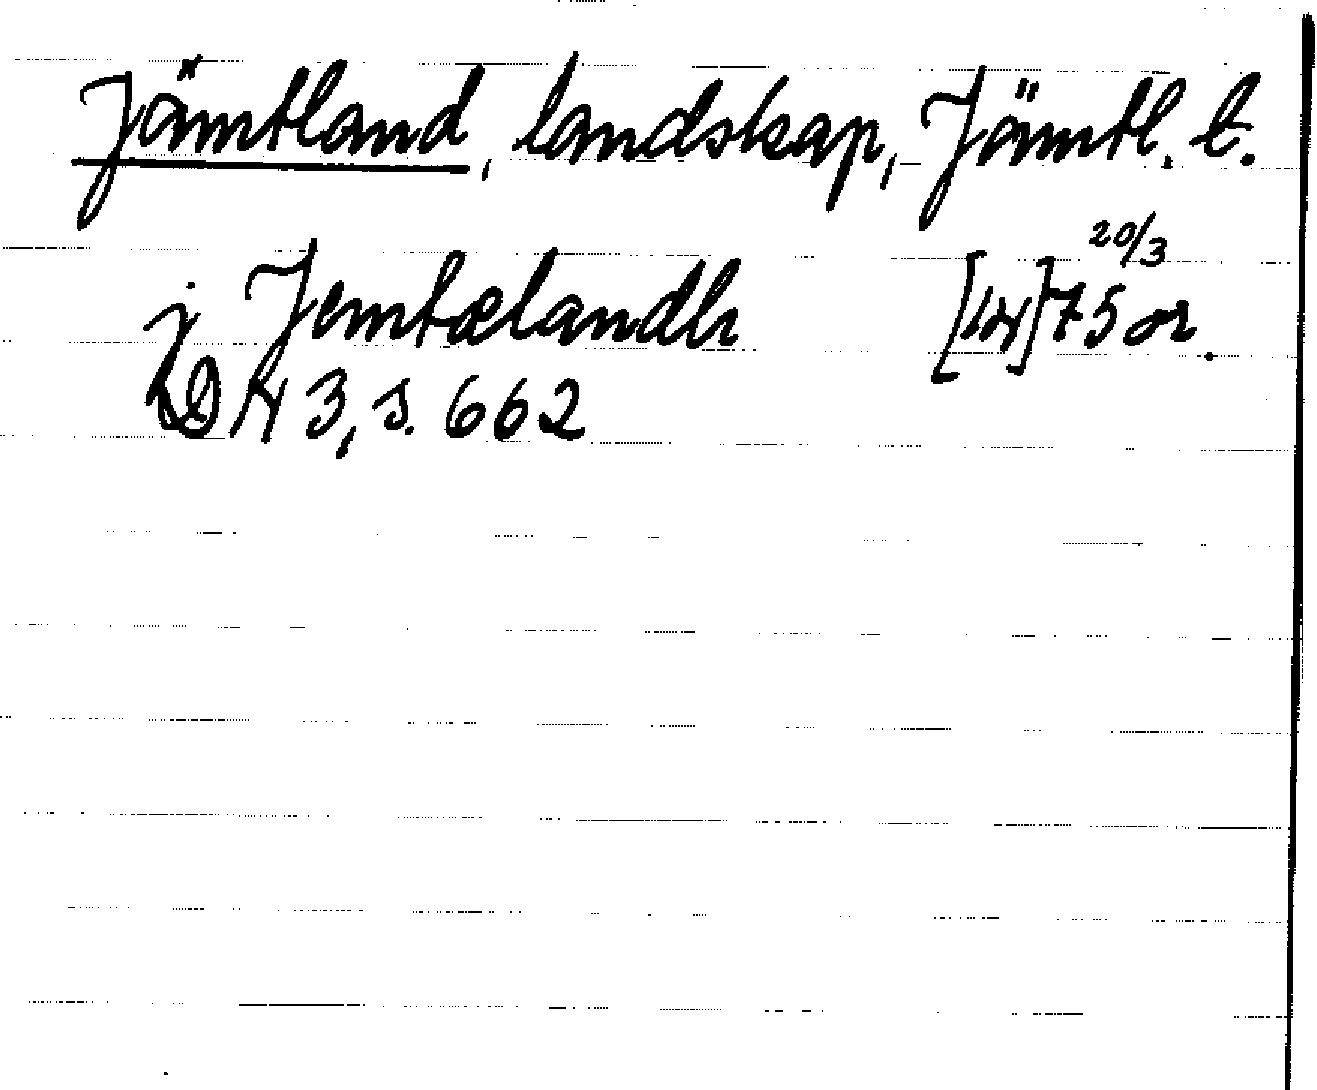 Jämtland, landskap, Jämtl. l.
j Jemtælandh [14]75 20/3 or.
DN 3, s. 662